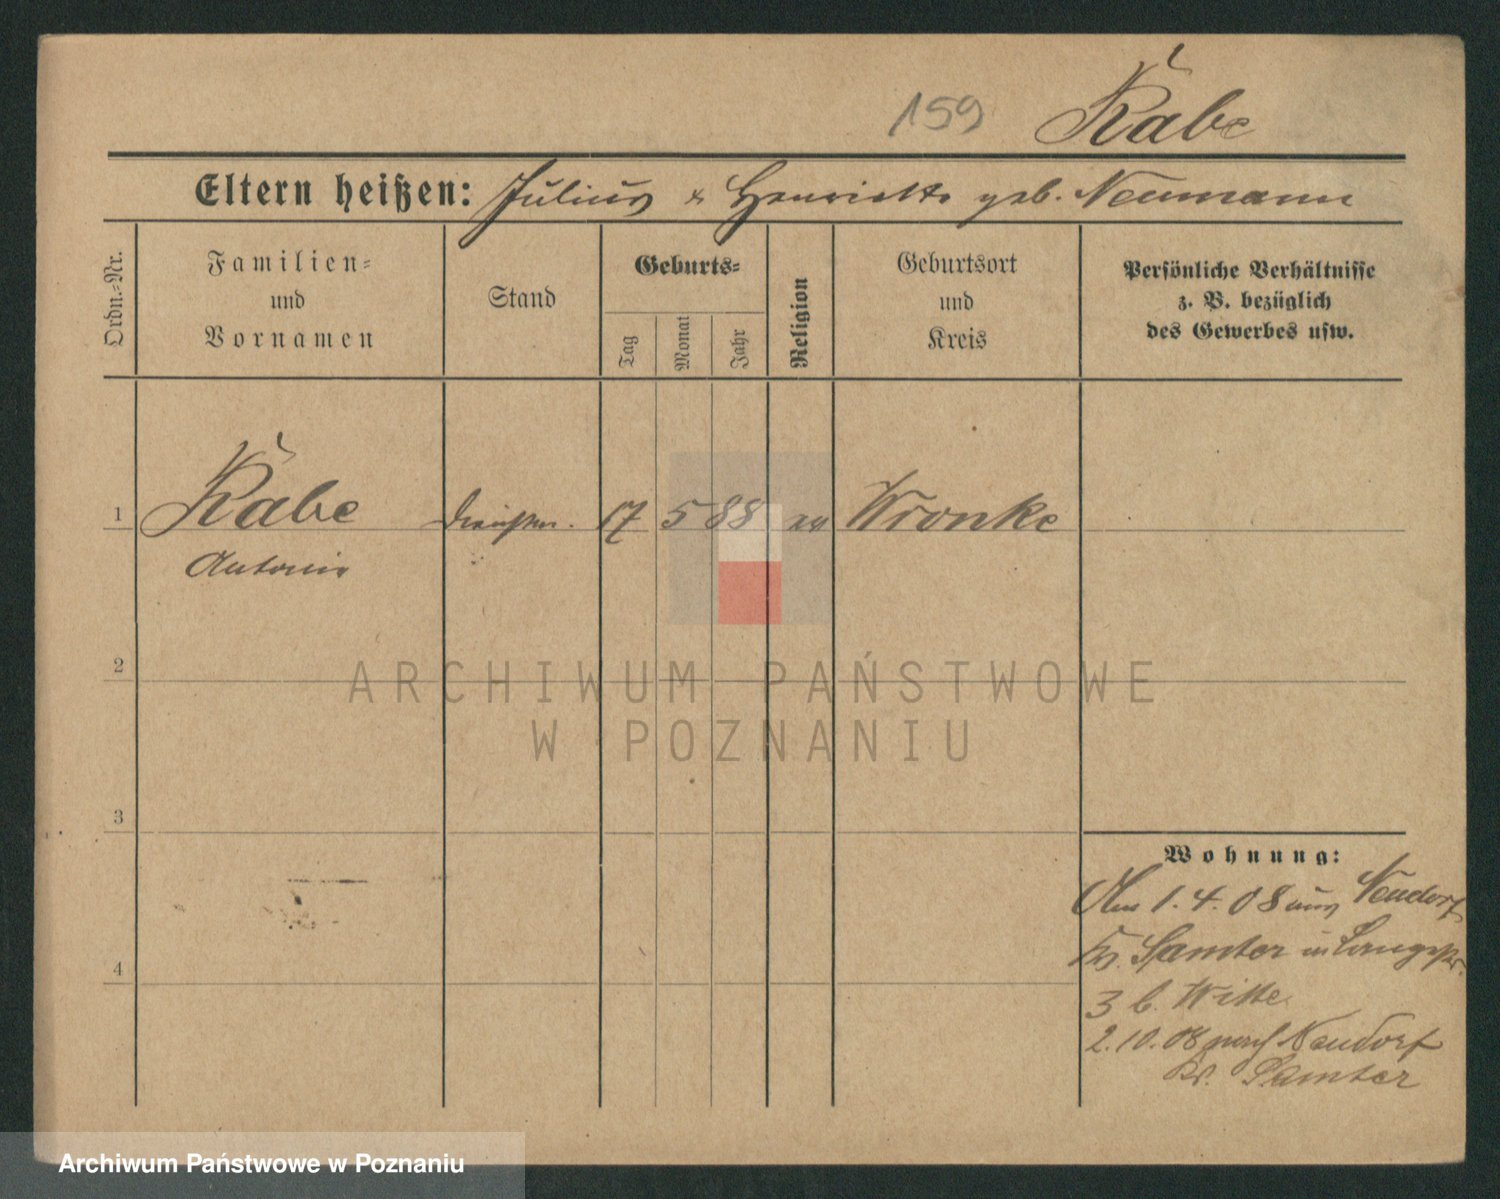 159 Rabe
Eltern heißen: Julius & Henriette geb. Neumann
Ordn.-Nr.
Familien-
und
Vornamen
Stand
Geburts-
Tag
Monat
Jahr
Religion
Geburtsort
und
Kreis
Persönliche Verhältnisse
z. B. bezüglich
des Gewerbes usw.
1 Rabe 17 5 88 ev Wronke
Antonie
2
ARCHIWUM PAŃSTWOWE
W POZNANIU
3
Wohnung:
Am 1. 4. 08 aus Neudorf
Kr. Samter in Langestr.
4
3 b. Witte
2. 10. 08 nach Neudorf
Kr. Samter
Archiwum Państwowe w Poznaniu